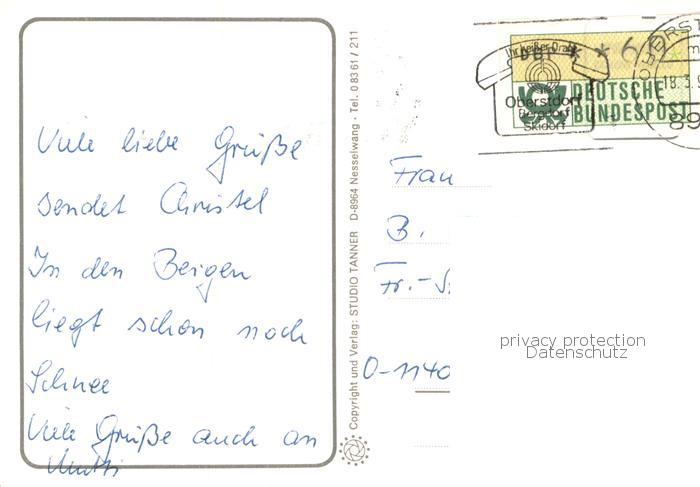 Viele liebe Grüße
sendet Christel
In den Bergen
liegt schon noch
Schnee
Viele Grüße auch an
Mutti
Copyright und Verlag: STUDIO TANNER D-8964 Nesselwang · Tel. 0 83 61 / 211
Ihr heißer Draht
DBP
Oberstdorf
Bergdorf
Skidorf
* * 6
DEUTSCHE
BUNDESPOST
18. 3. 9
89
Frau
B.
Fr.-
O-1140
privacy protection
Datenschutz